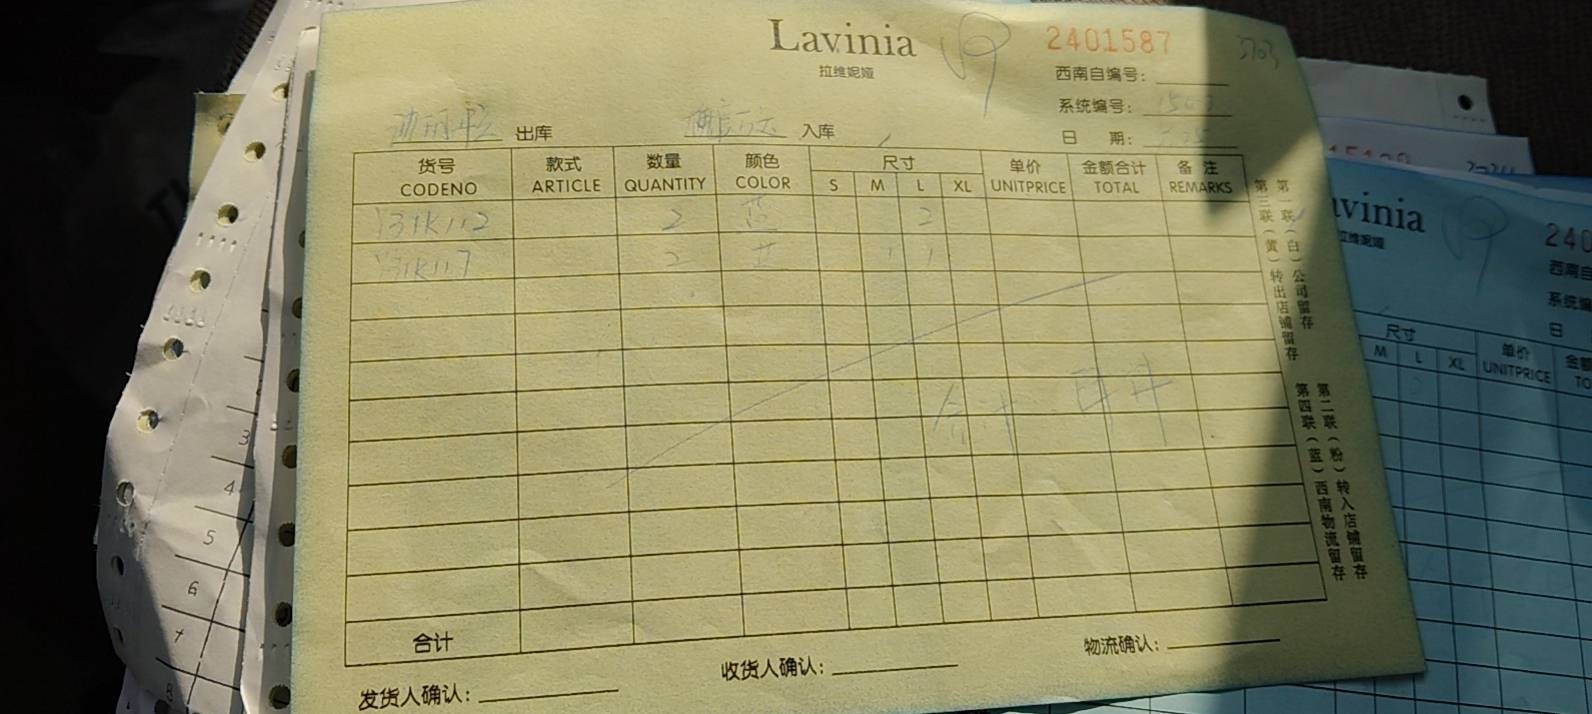 Lavinia
拉维妮娅
2401587
3703
西南自编号:
系统编号:
出库
入库
日 期:
货号 款式 数量 颜色 尺寸 单价 金额合计 备注
CODENO ARTICLE QUANTITY COLOR S M L XL UNITPRICE TOTAL REMARKS
Y31K112 2 蓝 2
Y31K117 2 兰 1 1
合计
合计
发货人确认:
收货人确认:
物流确认:
第一联(白)公司留存
第三联(黄)转出店铺留存
第二联(粉)转入店铺留存
第四联(蓝)西南物流留存
3
4
5
6
7
8
avinia
拉维妮娅
240
西南自
系统编
日
尺寸 单价 金额
M L XL UNITPRICE TO